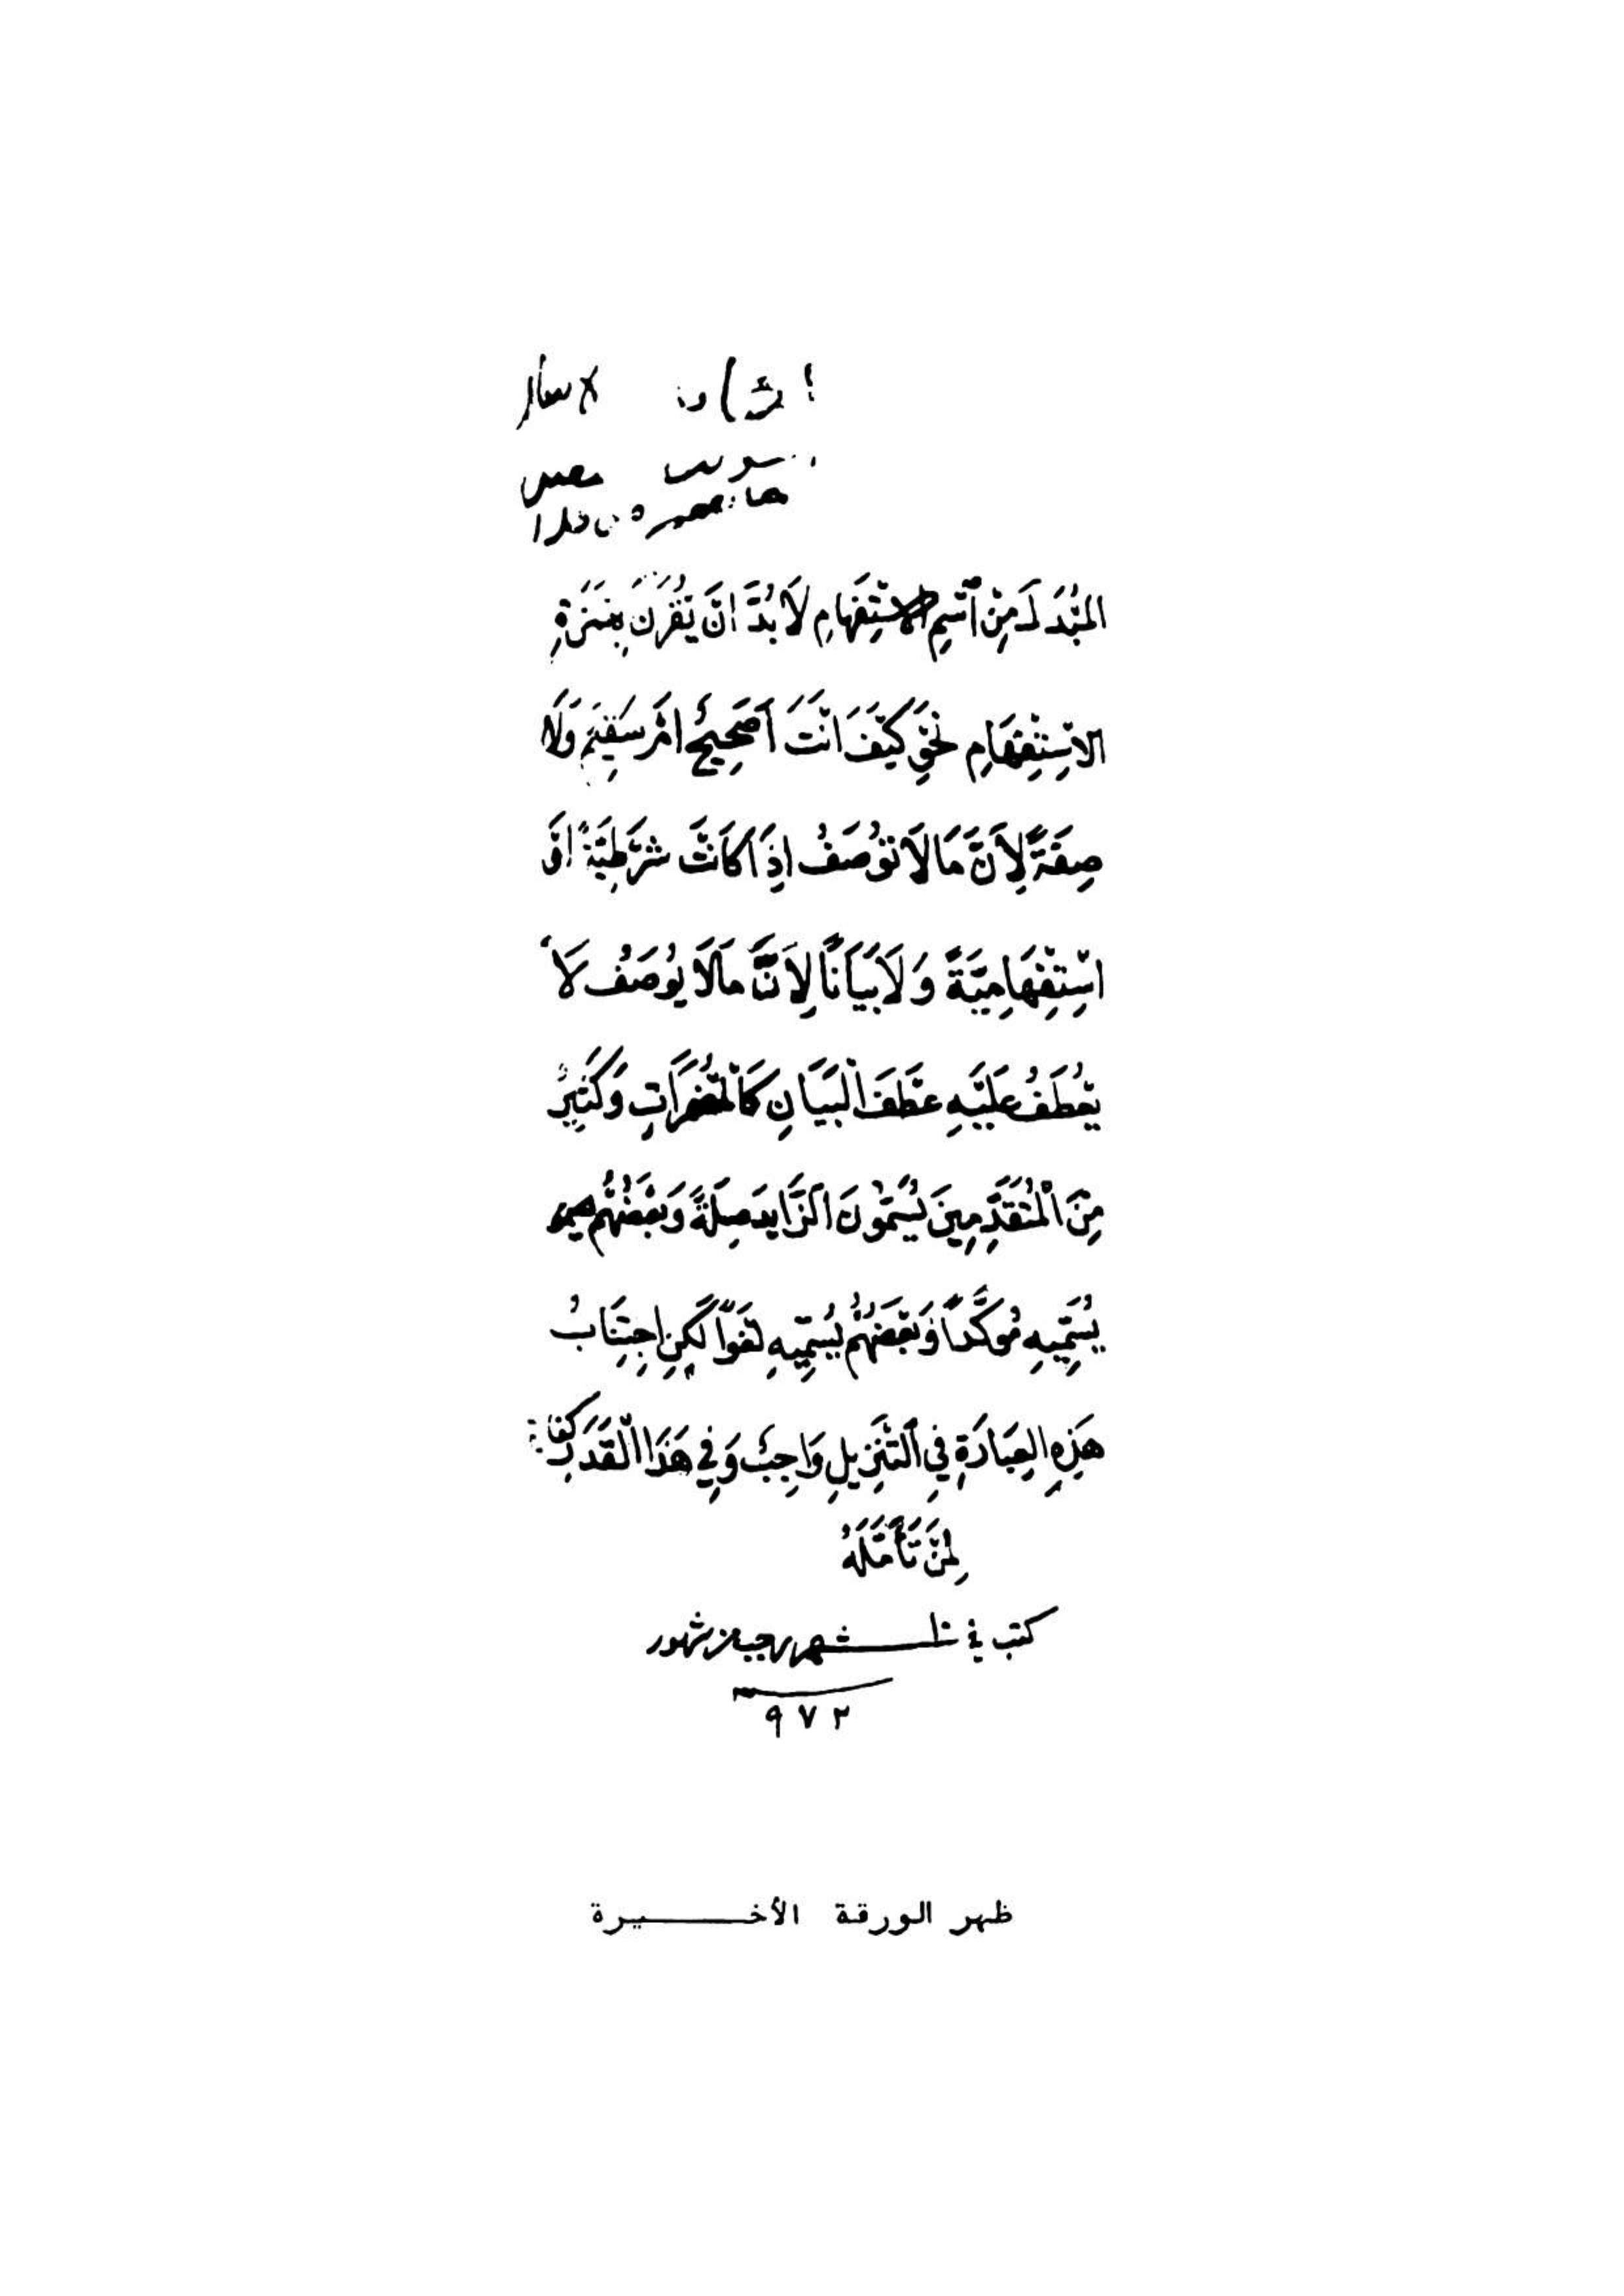 المُبْدَلَ مِنْ اَسْمِ الاسْتِفْهَامِ لَا بُدَّ اَنْ يَقْرُنَ بِهَمْزَةِ
الاسْتِفْهَامِ نَحْوُ كَيْفَ اَنْتَ اَصَحِيحٌ اَمْ سَقِيمٌ وَلَا
صِفَةً لِاَنَّ مَا لَا تُوصَفُ اِذَا كَانَتْ شَرْطِيَّةً اَوْ
اسْتِفْهَامِيَّةً وَلَا بَيَانًا لِاَنَّ مَا لَا يُوصَفُ لَا
يُعْطَفُ عَلَيْهِ عَطْفَ الْبَيَانِ كَالْمُضْمَرَاتِ وَكَثِيرٌ
مِنَ الْمُتَقَدِّمِينَ يُسَمُّونَ الزَّايِدَ صِلَةً وَبَعْضُهُمْ
يُسَمِّيهِ مُوَكَّدًا وَبَعْضُهُمْ يُسَمِّيهِ لَغْوًا لَكِنِ اجْتِنَابُ
هَذِهِ العِبَارَةِ فِي التَّنْزِيلِ وَاجِبٌ وَفِي هَذَا الْقَدَرِ كِفَا
لِمَنْ تَأَمَّلَهُ
كتب في شهر شهور
٩٧٢
ظهر الورقة الأخيرة